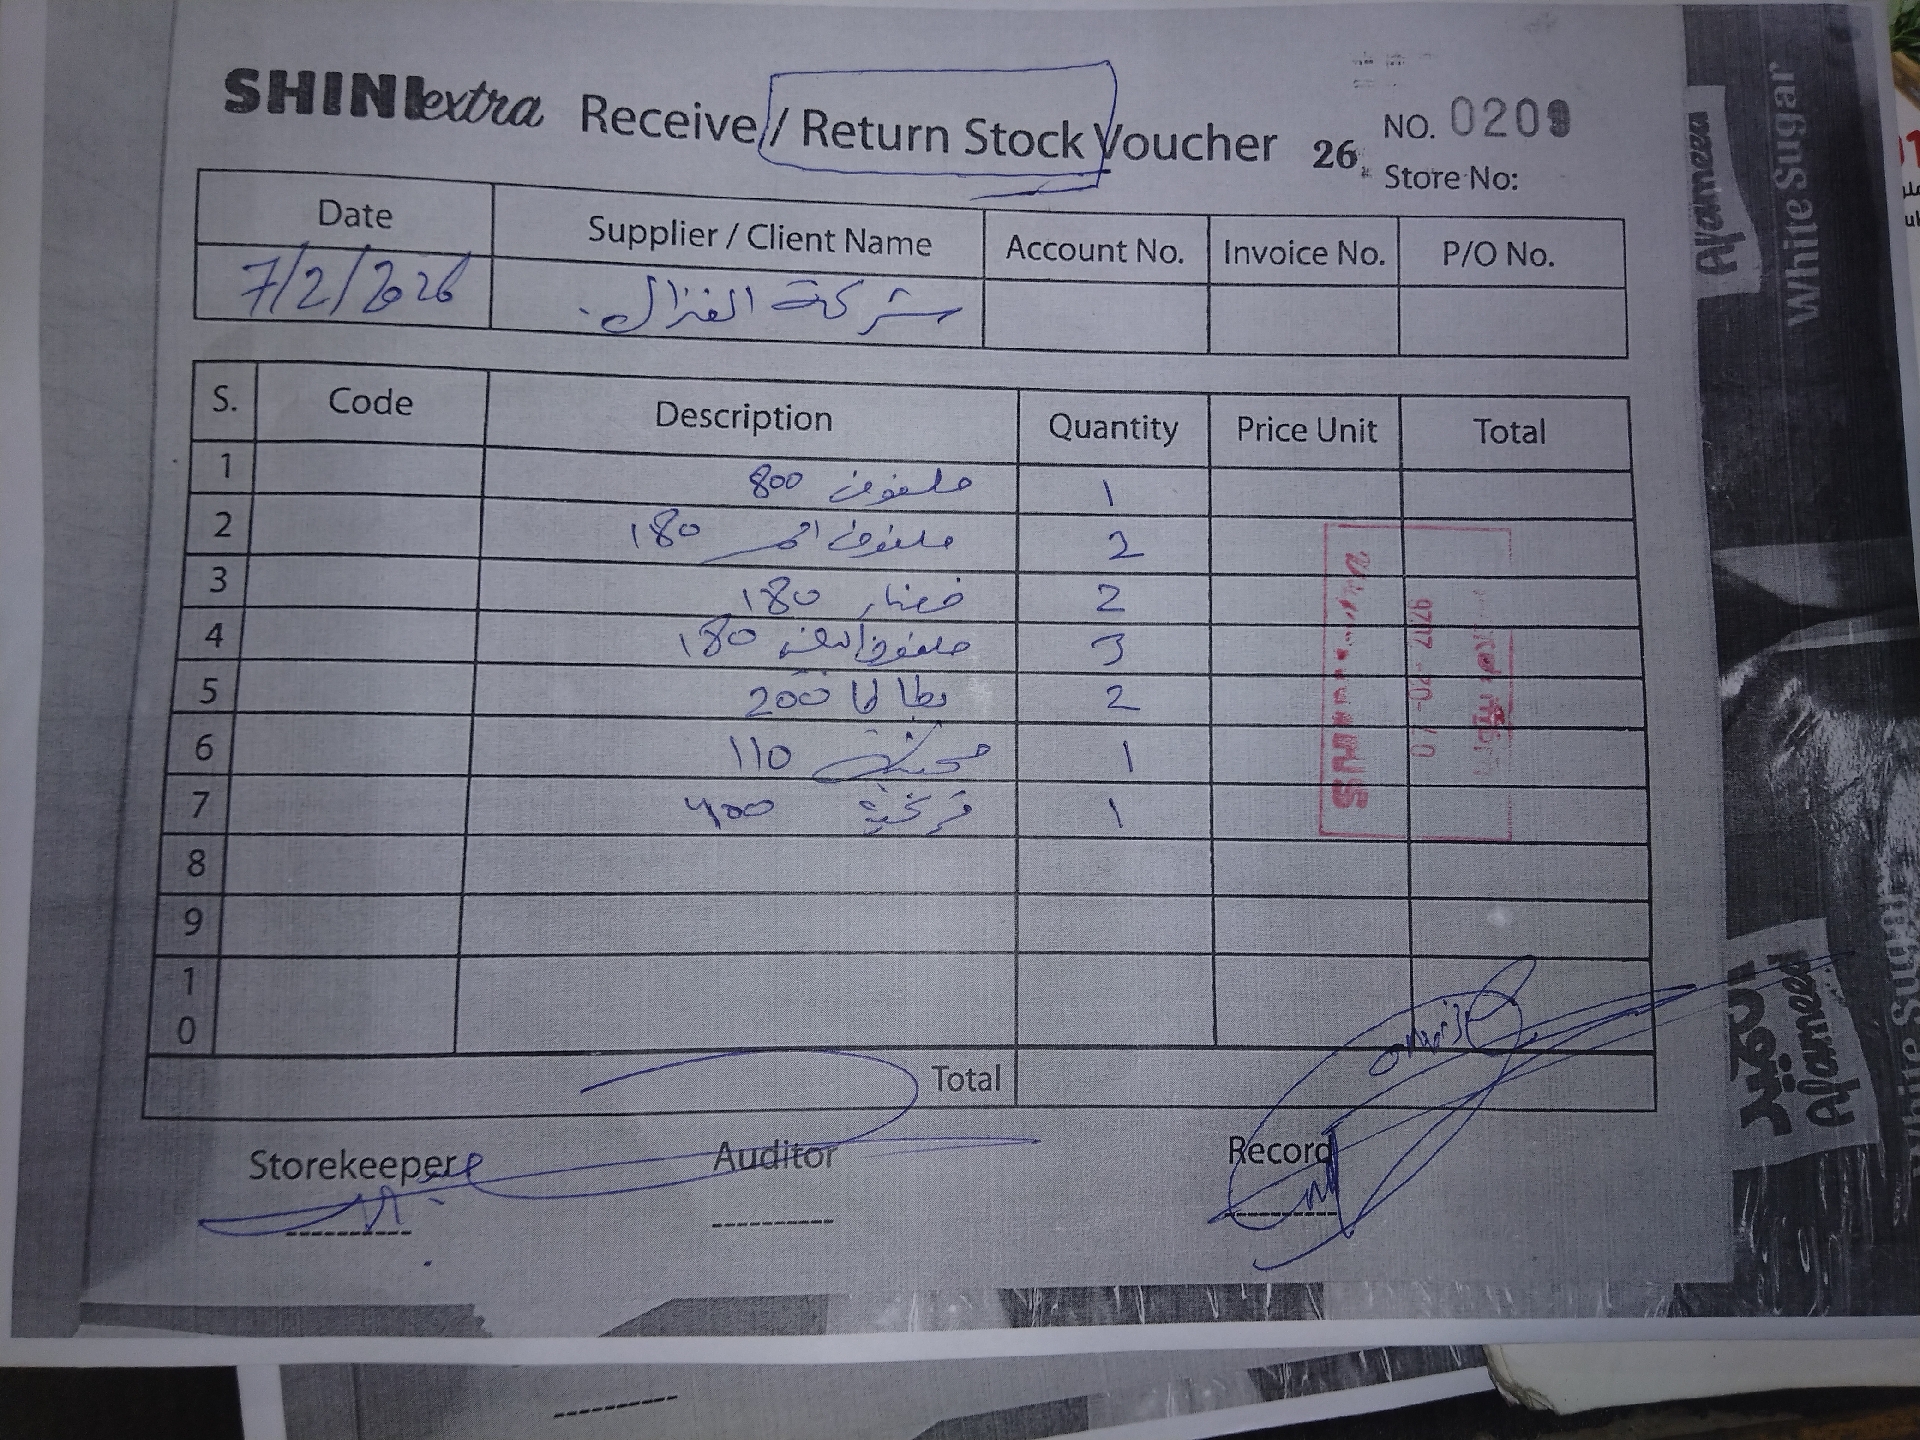 SHINI extra Receive / Return Stock Voucher 26. NO. 0209
Store No:
Date Supplier / Client Name Account No. Invoice No. P/O No.
7/2/2026 شركة الغزال.
S. Code Description Quantity Price Unit Total
1 ملفوف 800 1
2 ملفوف احمر 180 2
3 خضار 180 2
4 ملفوف 180 3
5 بطاطا 200 2
6 110 1
7 400 1
8
9
10
Total
Storekeeper Auditor Record
Ajameea
White Sugar
Ajameed
White Sugar